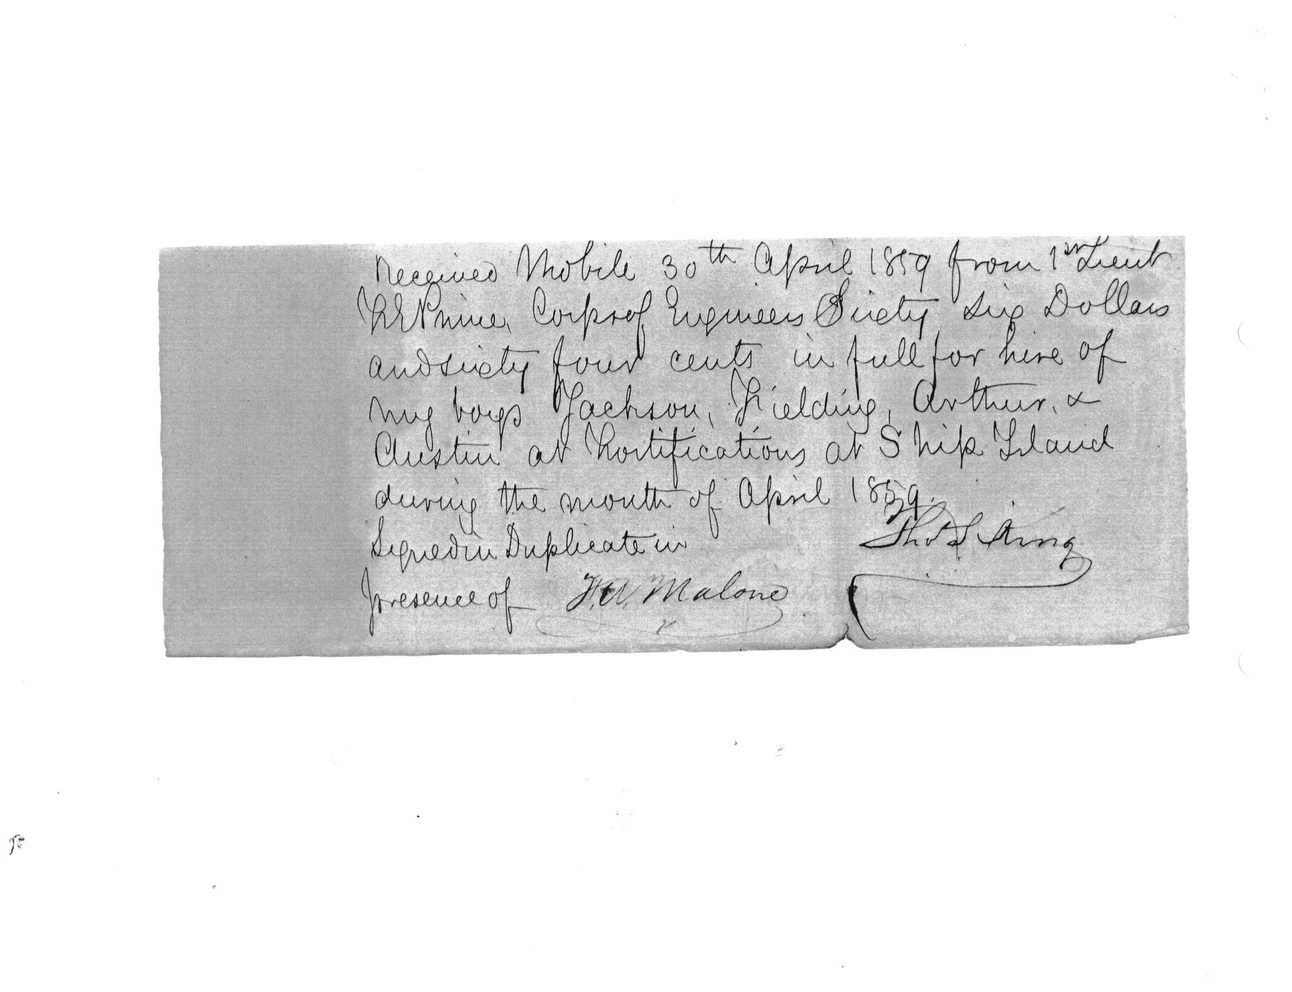 Received Mobile 30th April 1859 from 1st Lieut
F.E. Prime, Corps of Engineers Sixty six Dollars
and sixty four cents in full for hire of
my boys Jackson, Fielding, Arthur, &
Austin at Fortifications at Ship Island
during the month of April 1859.
Thos S King
Signed in Duplicate in
presence of F.W. Malone